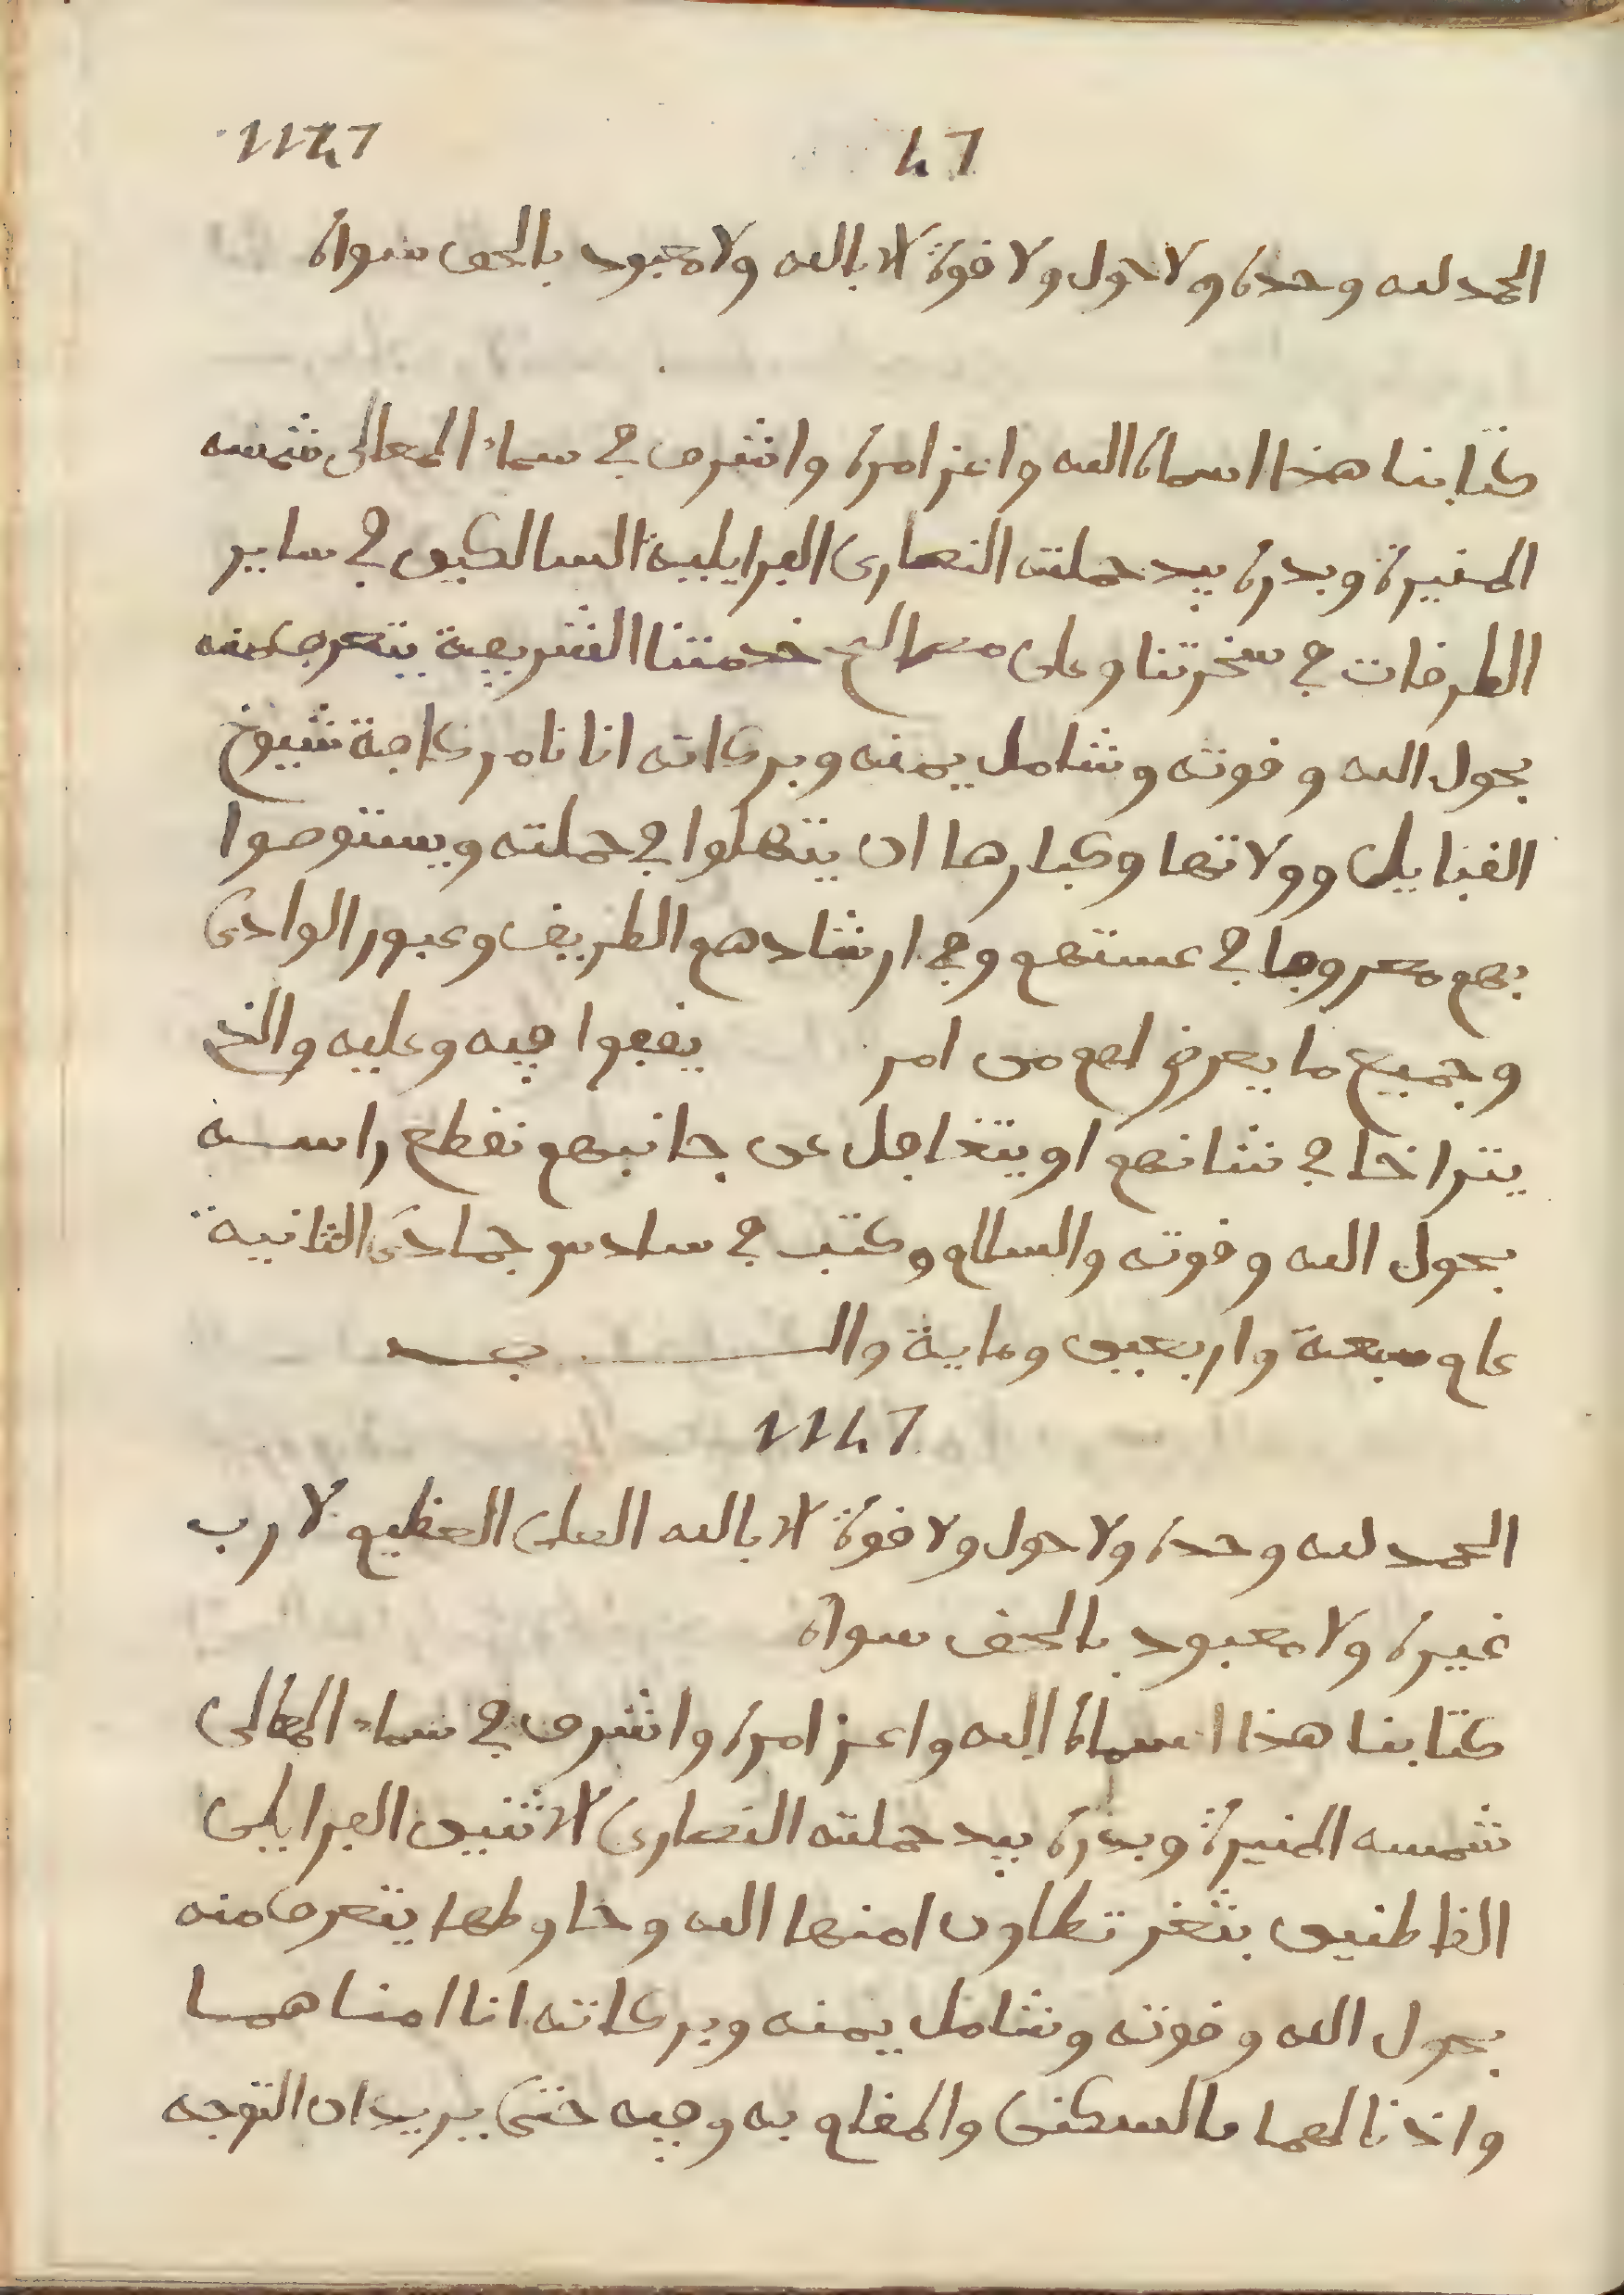 47 1147
الحمد لله وحده ولا حول ولا قوة الا بالله ولا معبود بالحق سواه
كتابنا هذا اسماه الله واعز امره واشرق في سماء المعالي شمسه
المنيرة وبدره بيد حملته النصارى الفرايلية السالكين في ساير
الطرقات في سخرتنا وعلى مصالح خدمتنا الشريفة يتعرف منه
بحول الله وقوته وشامل يمنه وبركاته اننا نامر كافة شيوخ
القبايل وولاتها وكبارها ان يتهلوا في حملته ويستوصوا
بهم معروفا في عستهم وفي ارشادهم الطريق وعبور الوادي
وجميع ما يعرض لهم من امر يقفوا فيه وعليه والذي
يتراخا في شانهم او يتغافل عن جانبهم نقطع راسه
بحول الله وقوته والسلام وكتب في سادس جمادى الثانية
عام سبعة واربعين وماية والف
1147
الحمد لله وحده ولا حول ولا قوة الا بالله العلي العظيم لا رب
غيره ولا معبود بالحق سواه
كتابنا هذا اسماه الله واعز امره واشرق في سماء المعالي
شمسه المنيرة وبدره بيد حملته النصارى الاثنين الفرايلي
القاطنين بثغر تطاون امنها الله وحاوطها يتعرف منه
بحول الله وقوته وشامل يمنه وبركاته اننا امناهما
واذنا لهما بالسكنى والمقام به وفيه حتى يريدان التوجه